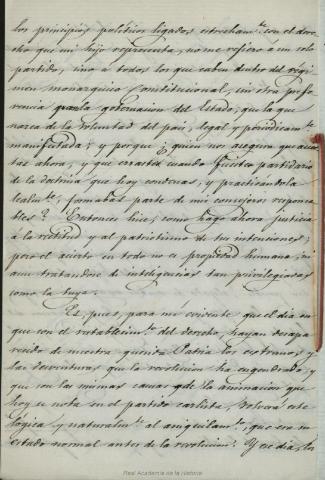 los principios políticos ligados estrecham.te con el dere-
cho que mi hijo representa, no me refiero á un solo
partido, sino á todos los que caben dentro del régi-
men monárquico Constitucional, sin otra prefe-
rencia para la gobernacion del Estado, que la que
nazca de la voluntad del pais, legal y periódicam.te
manifestada; y porque ¿quién nos asegura que acier-
tas ahora, y que erraste cuando fuiste partidario
de la doctrina que hoy condenas, y practicándola
lealm.te, formabas parte de mis consejeros responsa-
bles? Entonces hice, como hago ahora justicia
á la rectitud y al patriotismo de tus intenciones;
pero el acierto en todo no es propiedad humana, ni
aun tratándose de inteligencias tan privilegiadas
como la tuya.
Es, pues, para mí evidente que el dia en
que con el restablecim.to del derecho, hayan desapa-
recido de nuestra querida Patria los estragos y
las desventuras que la revolucion ha engendrado, y
que son las mismas causas de la animacion que
hoy se nota en el partido carlista, volverá este
lógica y naturalm.te al aniquilam.to, que era su
estado normal antes de la revolucion. Y ese dia, los
Real Academia de la Historia